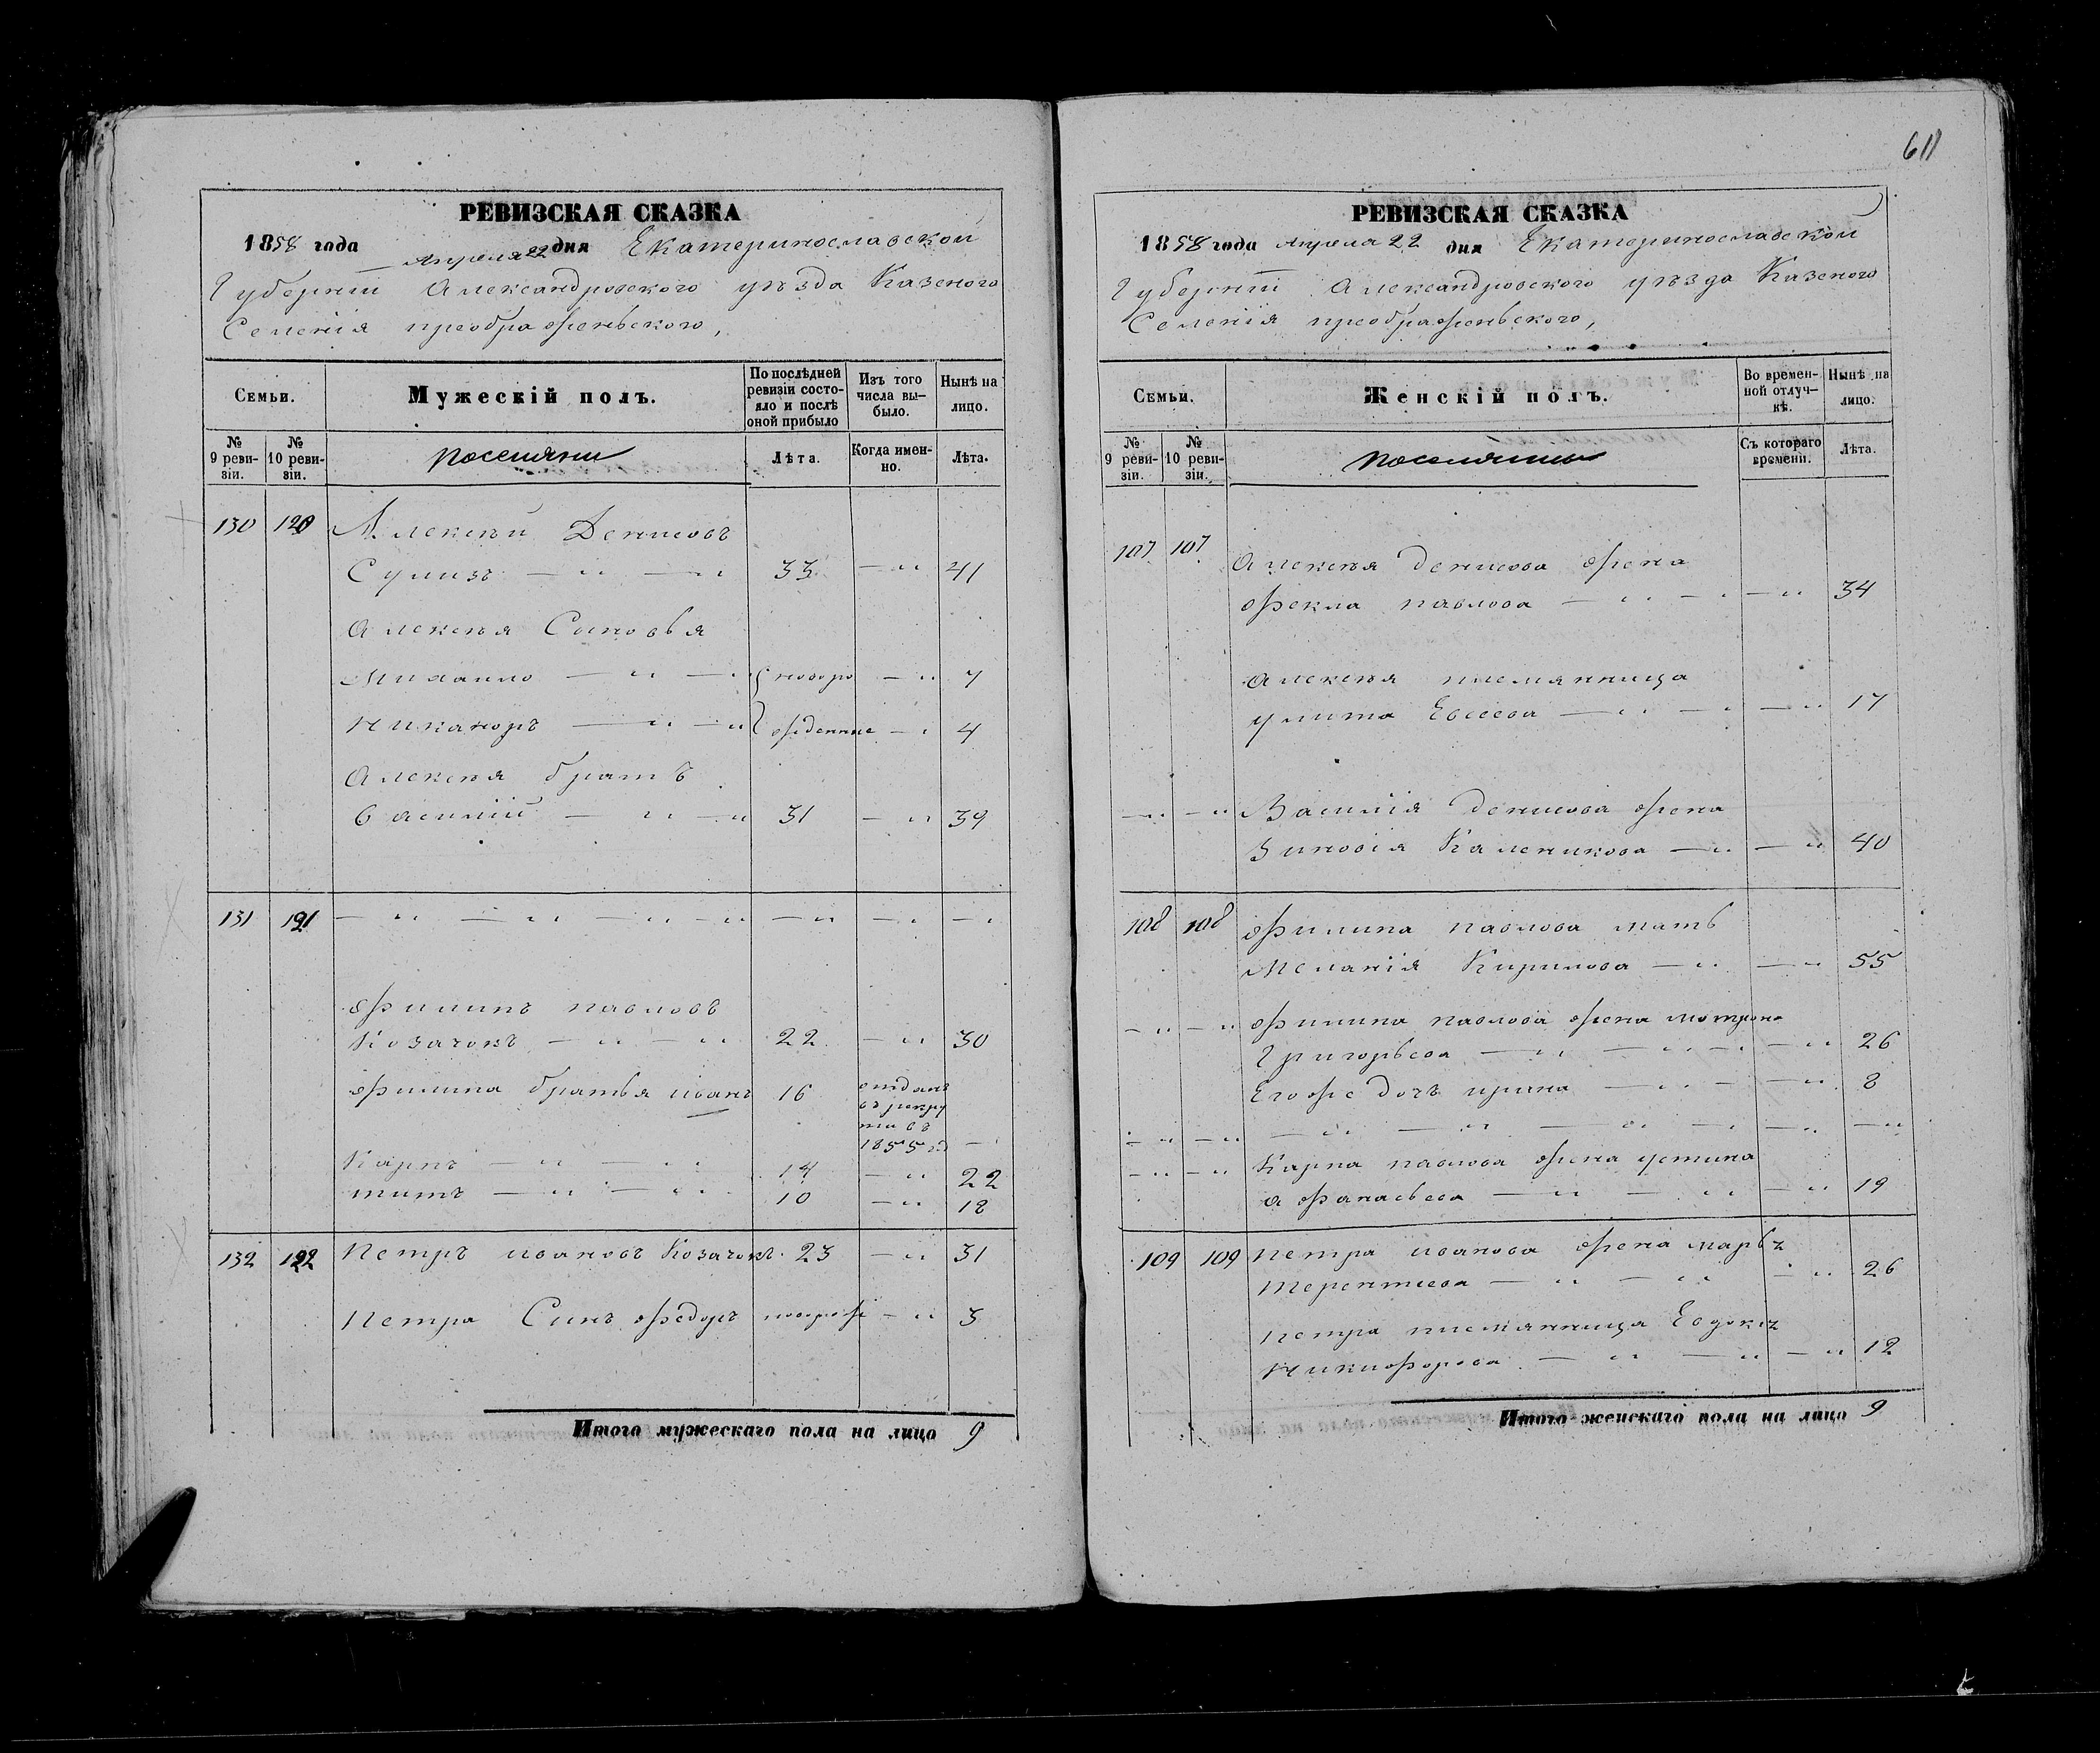 611
РЕВИЗСКАЯ СКАЗКА
1858 года Апреля 22 дня Екатеринославской
Губерніи Александровского уѣзда Казеного
Селенія преображеньского,
Семьи.
Мужескій полъ.
По послѣдней ревизіи состояло и послѣ оной прибыло
Изъ того числа выбыло.
Нынѣ на лицо.
№ 9 ревизіи.
№ 10 ревизіи.
поселяни
Лѣта.
Когда именно.
Лѣта.
130 120 Алексѣй Денисовъ
Сулизъ — " — " 33 — " 41
Алексѣя Сыновья
Михаило — " — " новоро — " 7
Никаноръ — " — " жденние — " 4
Алексѣя братъ
Василий — " — " 31 — " 39
131 121 — " — " — " — " — " — " — "
Филипъ павловъ
Козачокъ — " — " 22 — " 30
Филипа братья иванъ 16 отданъ
въ рекру
ти въ
1855 год — "
Карпъ — " — " 14 — " 22
титъ — " — " 10 — " 18
132 122 Петръ ивановъ Козачокъ 23 — " 31
Петра Синъ федоръ новорож — " 3
Итого мужескаго пола на лицо 9
РЕВИЗСКАЯ СКАЗКА
1858 года Апреля 22 дня Екатеринославской
Губерніи Александровского уѣзда Казеного
Селенія преображеньского,
Семьи.
Женскій полъ.
Во временной отлучкѣ.
Нынѣ на лицо.
№ 9 ревизіи.
№ 10 ревизіи.
Съ котораго времени.
Лѣта.
107 107 Алексѣя Денисова жена
фекла павлова — " — " — " 34
Алексѣя племянница
улита Евсеева — " — " — " 17
— " — " Василія Денисова жена
Зиновія Каленикова — " — " 40
108 108 Филипа павлова мать
Меланія Кирилова — " — " 55
— " — " Филипа павлова жена мотрона
Григорьева — " — " — " — " 26
Егоже дочъ ирина — " — " — " 8
— " — " — " — " — " — " — " — "
— " — " Карпа павлова жена устина
Афанасьева — " — " — " 19
109 109 Петра иванова жена марья
терентиева — " — " — " 26
Петра племянница Евдокія
Никифорова — " — " — " 12
Итого женскаго пола на лицо 9